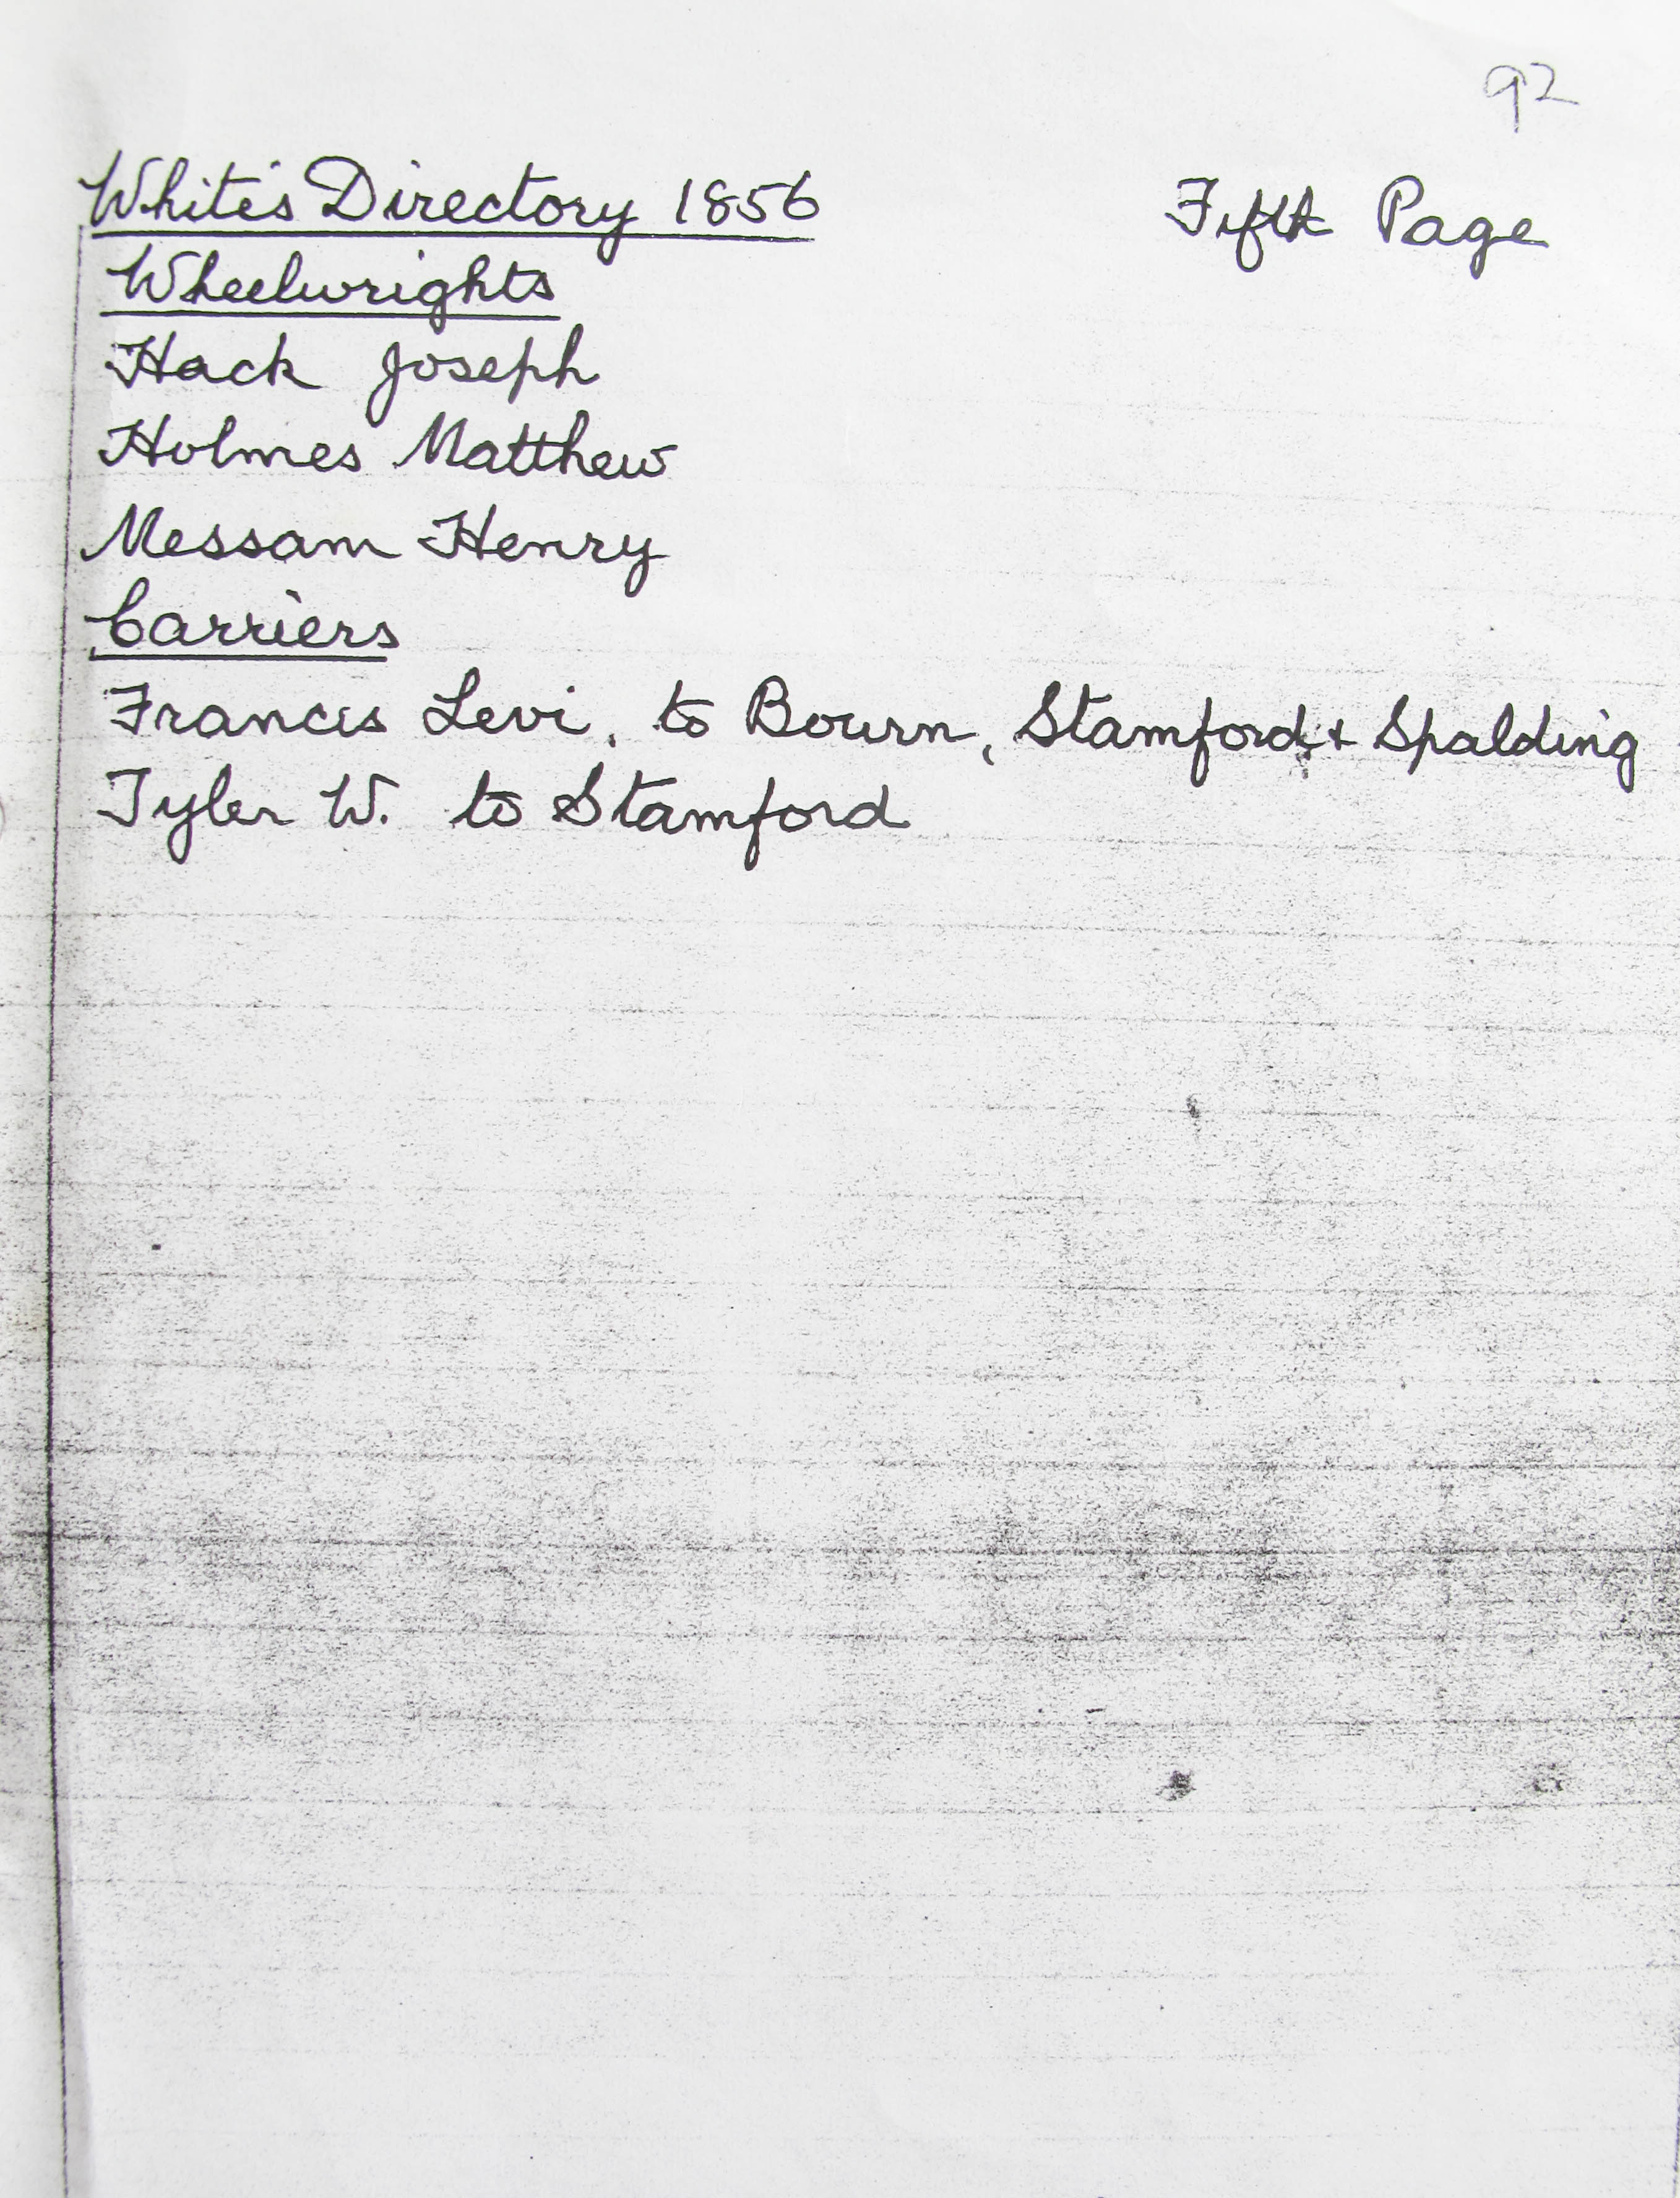 92
White's Directory 1856 Fifth Page
Wheelwrights
Hack Joseph
Holmes Matthew
Messam Henry
Carriers
Francis Levi, to Bourn, Stamford, & Spalding
Tyler W. to Stamford